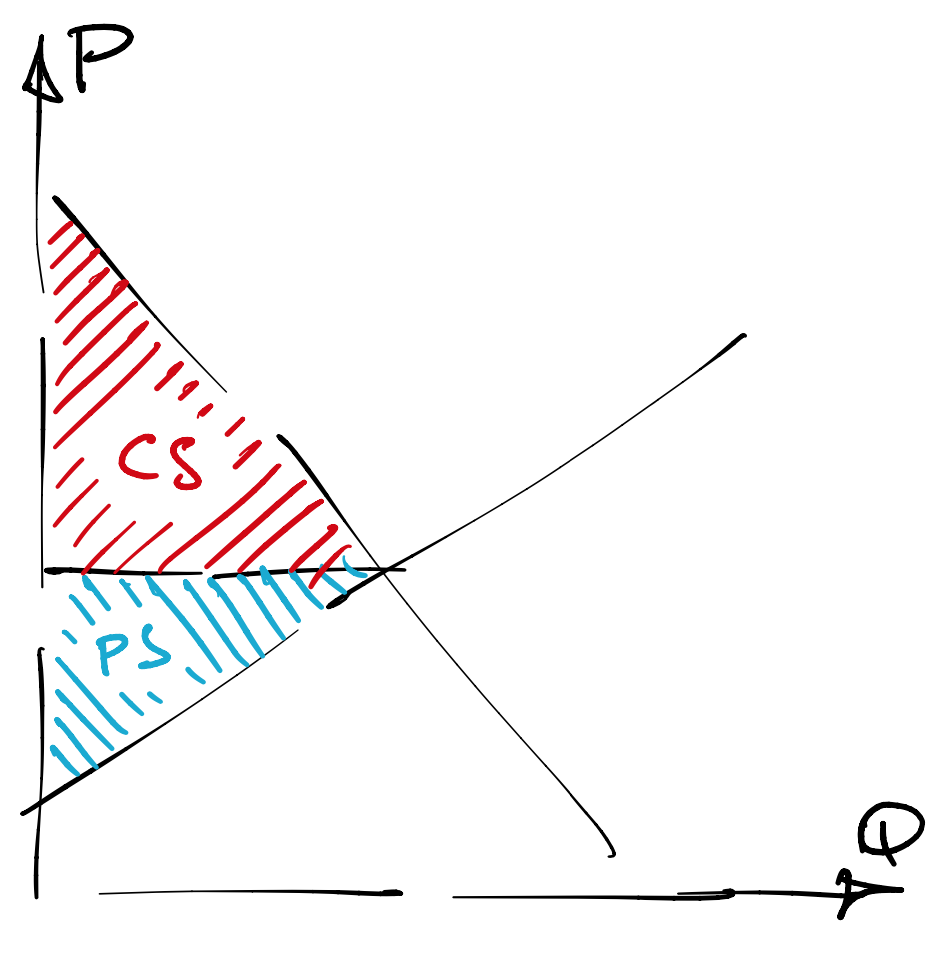 P
CS
PS
Q